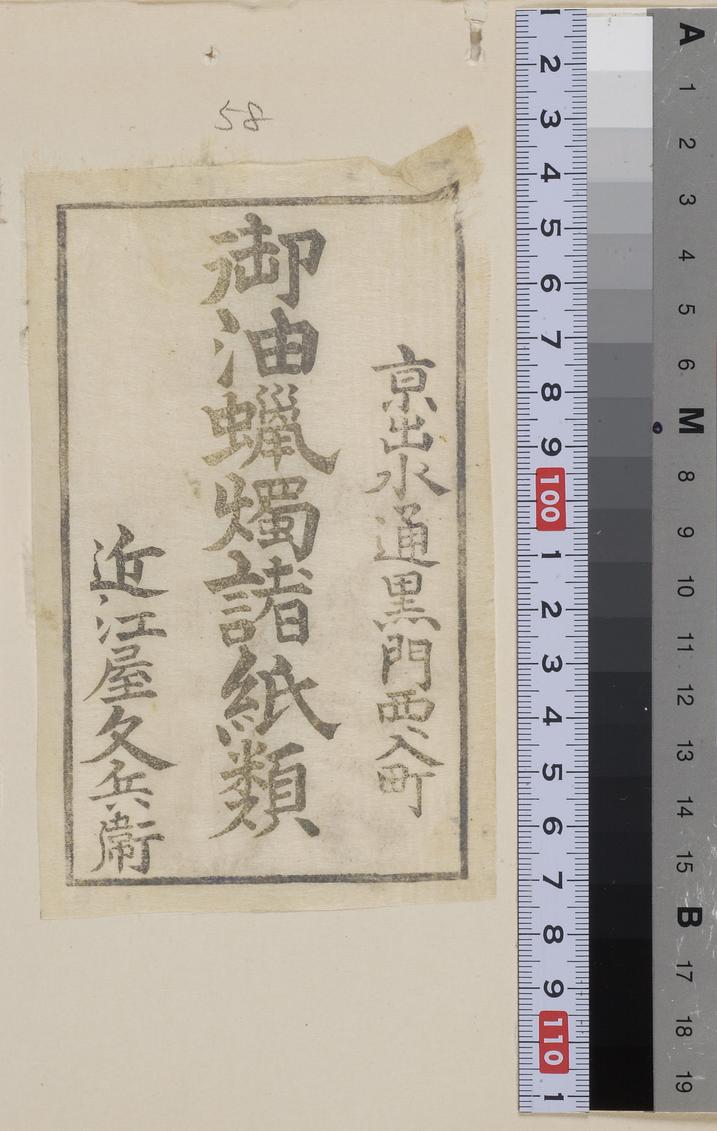 58
京出水通黒門西入町
御油蠟燭諸紙類
近江屋久兵衛
1 2 3 4 5 6 7 8 9 100 1 2 3 4 5 6 7 8 9 110 1
A 1 2 3 4 5 6 M 8 9 10 11 12 13 14 15 B 17 18 19